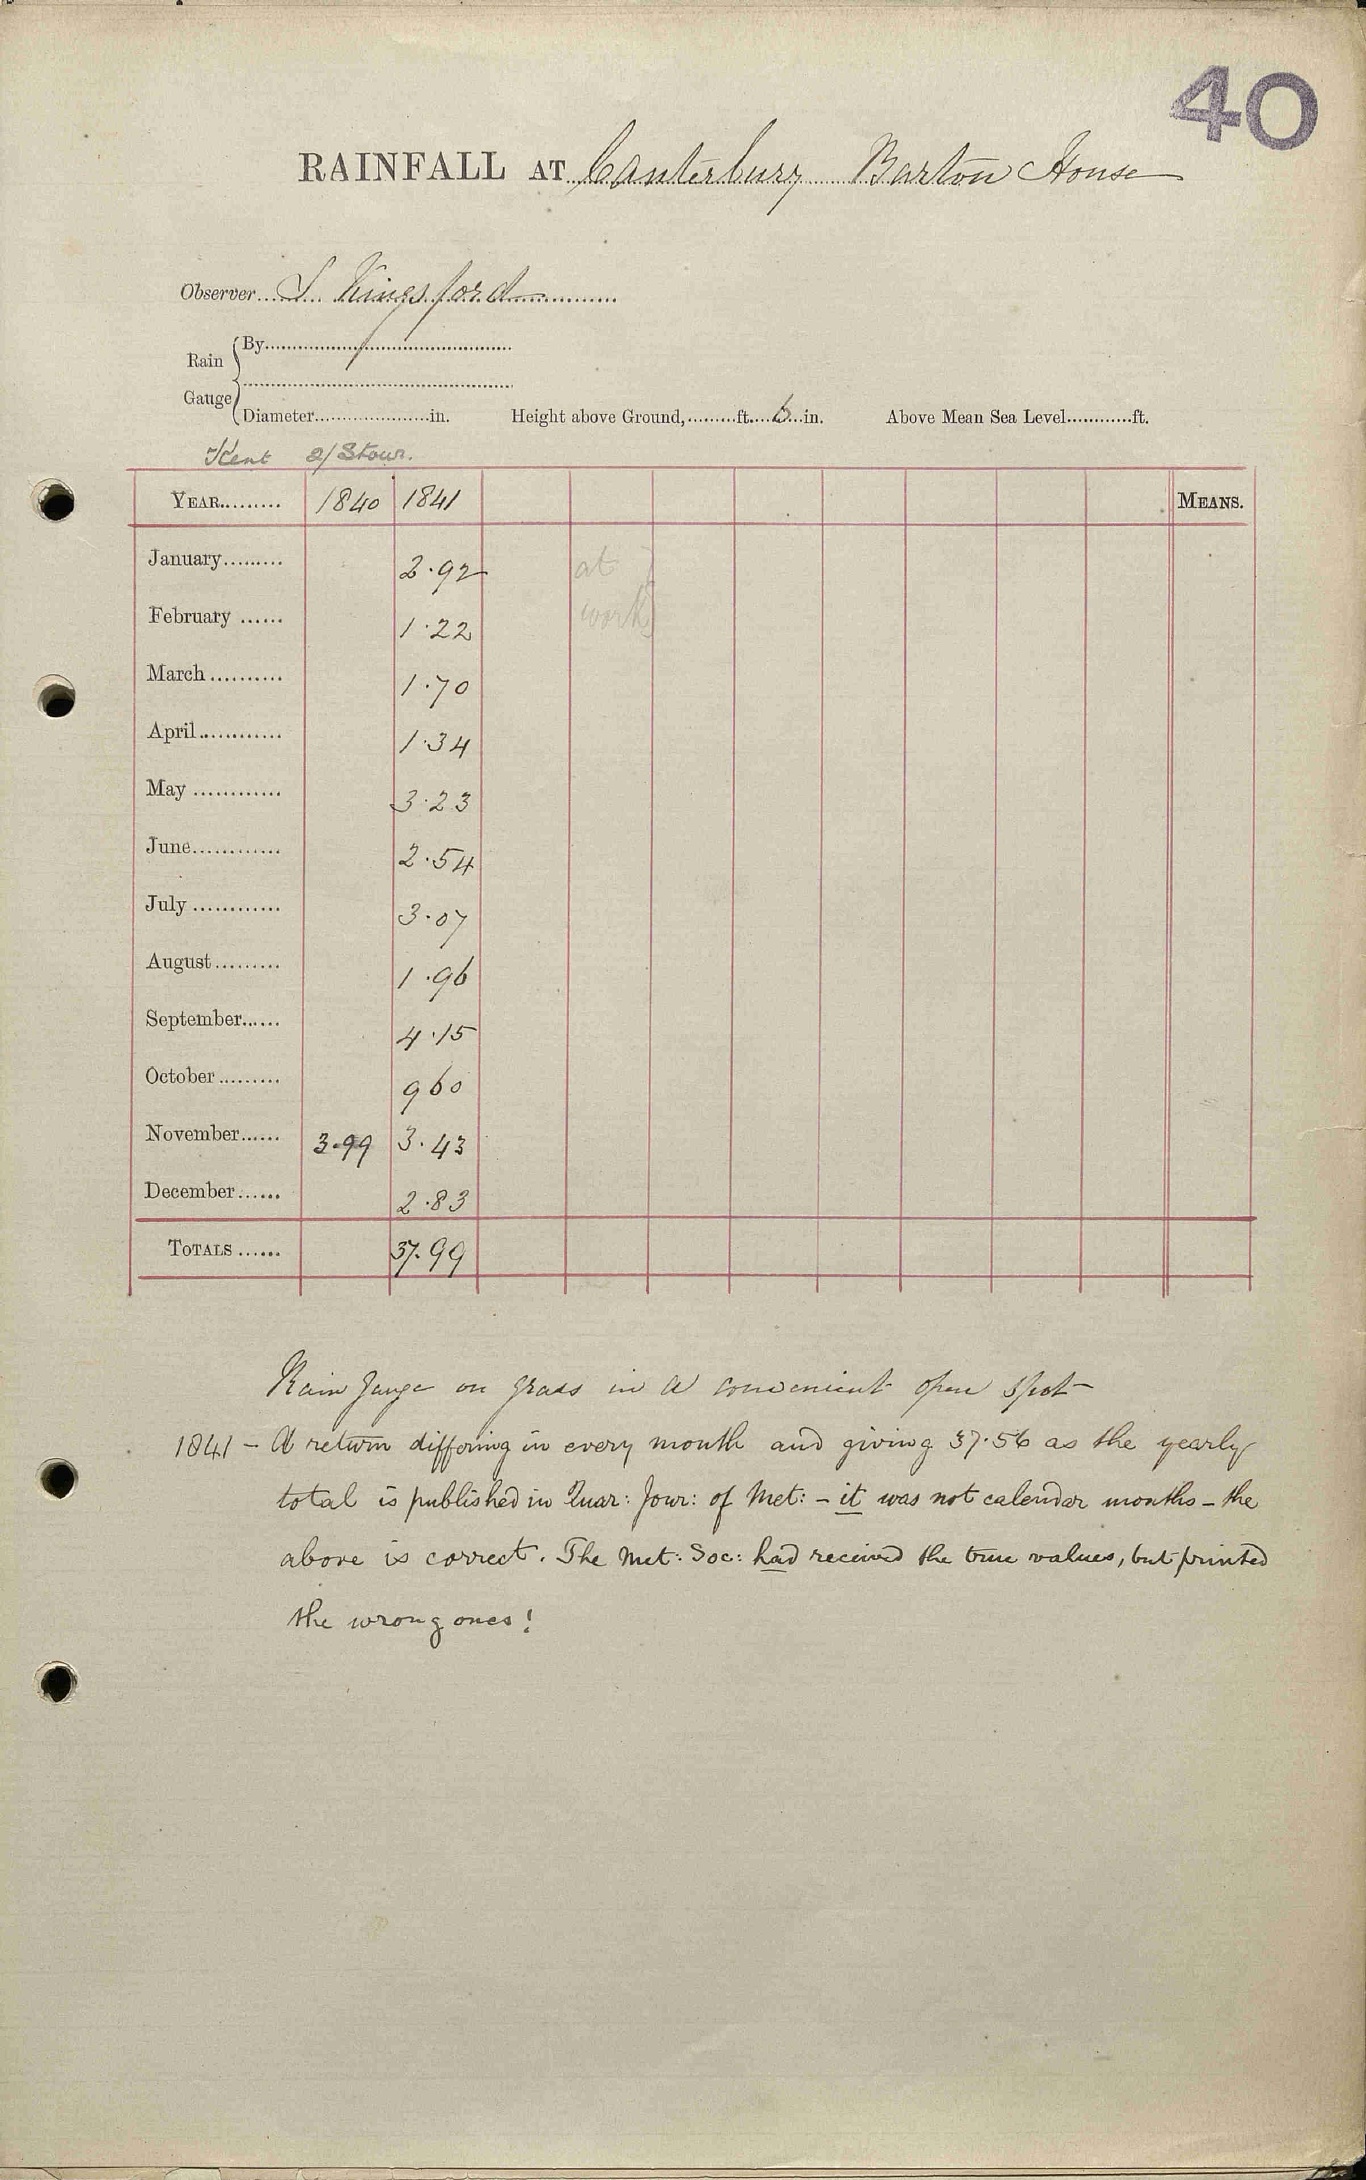 40
RAINFALL AT Canterbury Barton House
Observer.... S Kingsford ............
Rain Gauge { By............
............
Diameter............in. Height above Ground,.........ft.... 6 ...in. Above Mean Sea Level............ft.
Kent 2/ Stour.
YEAR......... 1840 1841 MEANS.
January......... 2.92 at
February ...... 1.22 work
March.......... 1.70
April............ 1.34
May ............ 3.23
June............ 2.54
July ............ 3.07
August......... 1.96
September...... 4.15
October ......... 9 60
November...... 3.99 3.43
December...... 2.83
TOTALS ...... 37.99
Rain Gauge on grass in a convenient open spot
1841 - A return differing in every month and giving 37.56 as the yearly
total is published in Quar: Jour: of Met: - it was not calendar months - the
above is correct. The Met: Soc: had received the true values, but printed
the wrong ones!